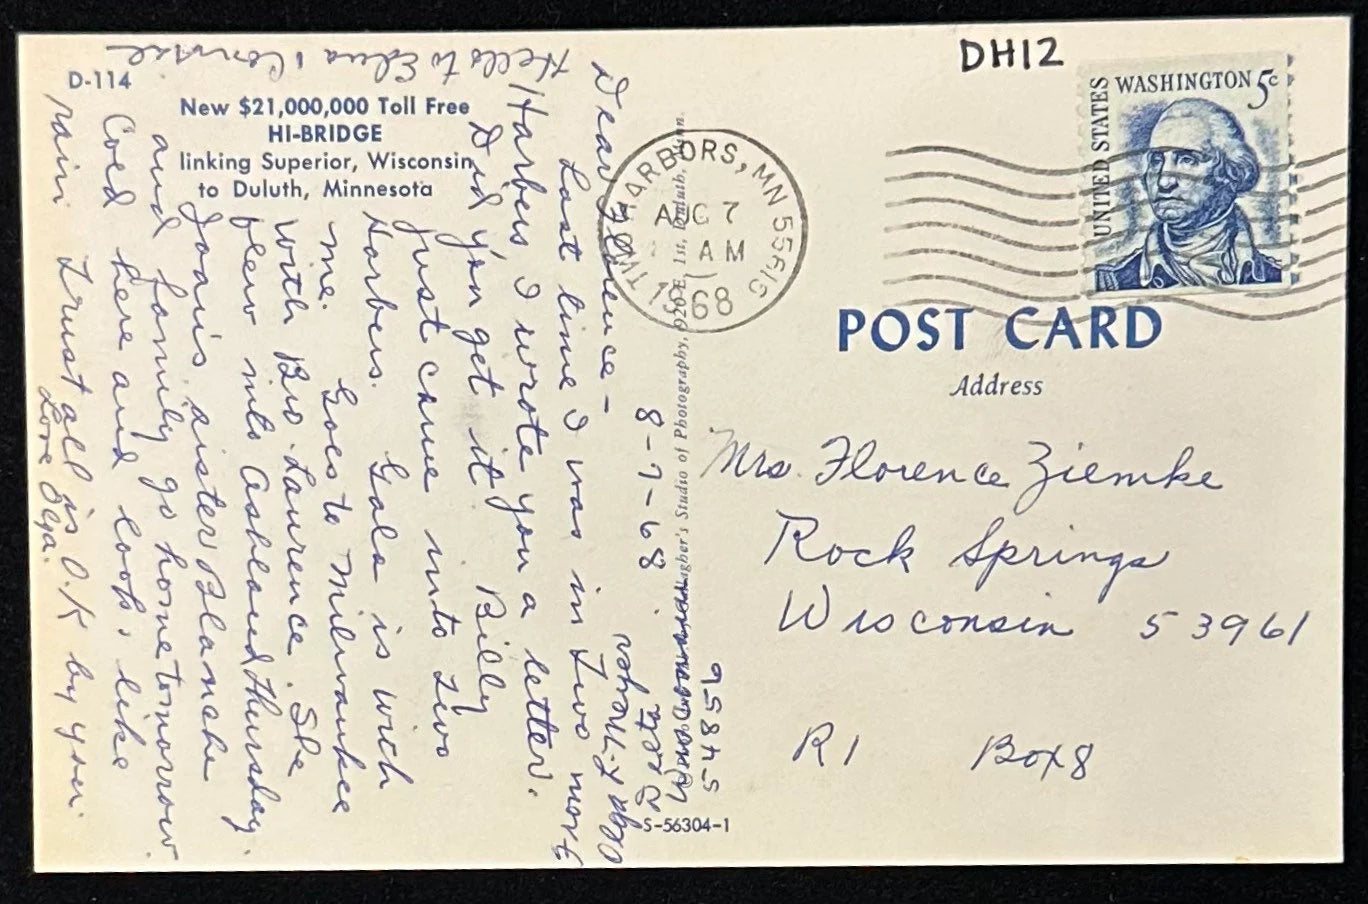 D-114
New $21,000,000 Toll Free
HI-BRIDGE
linking Superior, Wisconsin
to Duluth, Minnesota
8-7-68
Dear Florence –
Last time I was in Two
Harbers, I wrote you a letter.
Did you get it. Billy
just came into Two
Harbers. Gala is with
me. Goes to Milwaukee
with Bro. Laurence. She
flew into Ashland Thursday.
Joan's sister Blanche
and family go home tomorrow.
Cold here and looks like
rain Trust all is O.K by you.
Love Olga.
Hello to Edna & Connie
Olga
54856
Gallagher's Studio of Photography, 920 E. 1st, Duluth, Minn.
S-56304-1
DH12
TWO HARBORS, MN 55615
AUG 7
AM
1968
UNITED STATES
WASHINGTON 5c
POST CARD
Address
Mrs. Florence Ziemke
Rock Springs
Wisconsin 53961
R1 Box 8